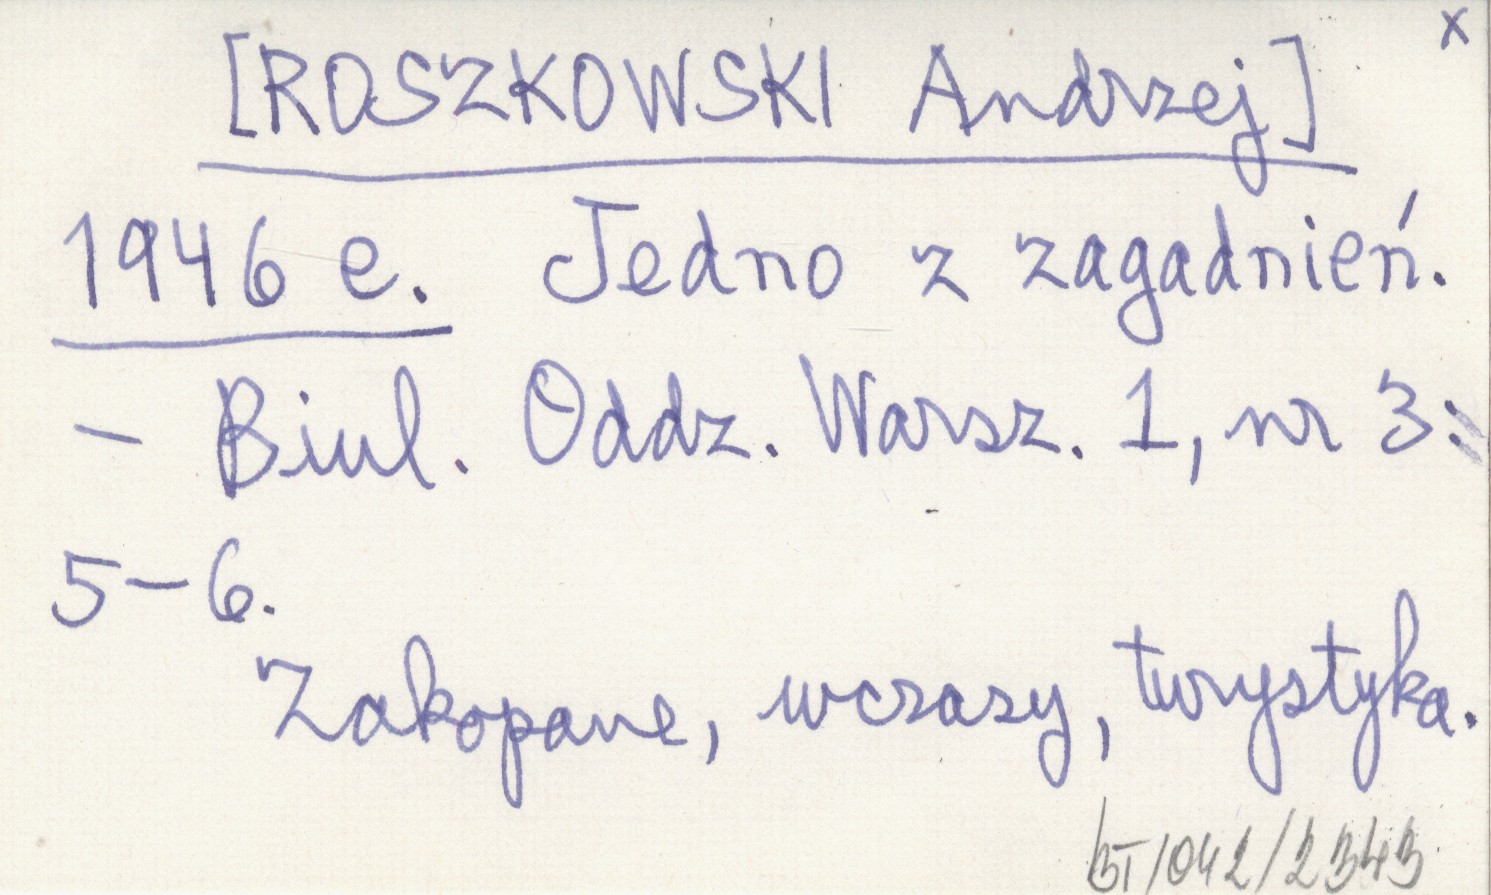 x
[ROSZKOWSKI Andrzej]
1946 e. Jedno z zagadnień.
- Biul. Oddz. Warsz. 1, nr 3:
5-6.
Zakopane, wczasy, turystyka.
BT/042/2343